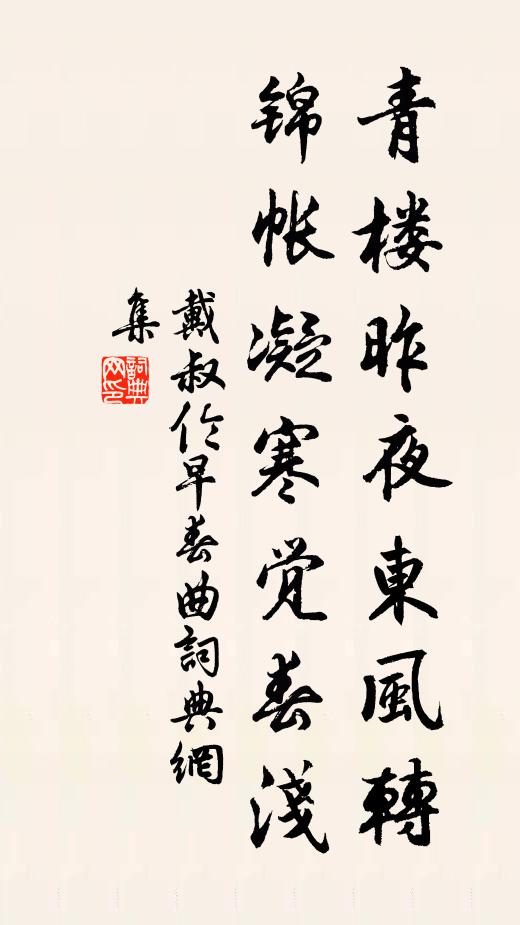 青楼昨夜東風轉
錦帐凝寒觉春淺
戴叔伦早春曲詞典網
集
詞典網印